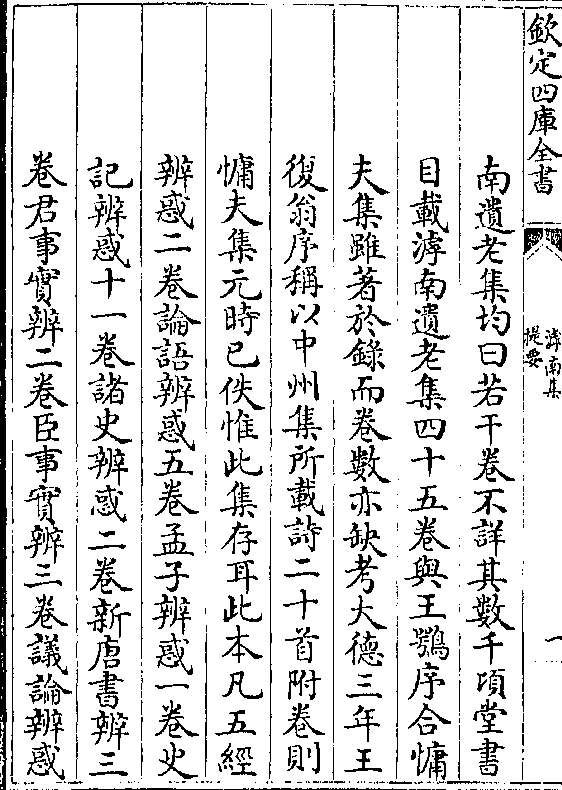 欽定四庫全書
滹南集
提要
一
南遺老集均曰若干卷不詳其數千頃堂書
目載滹南遺老集四十五卷與王鶚序合慵
夫集雖著於錄而卷數亦缺考大德三年王
復翁序稱以中州集所載詩二十首附卷則
慵夫集元時已佚惟此集存耳此本凡五經
辨惑二卷論語辨惑五卷孟子辨惑一卷史
記辨惑十一卷諸史辨惑二卷新唐書辨三
卷君事實辨二卷臣事實辨三卷議論辨惑